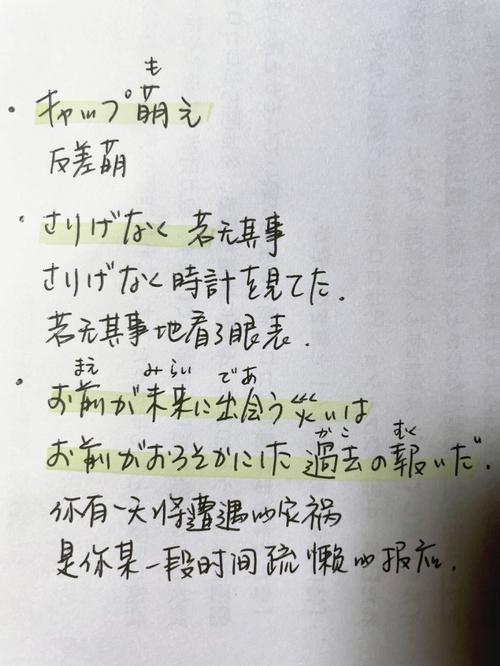 も
・キャップ萌え
反差萌
・さりげなく 若无其事
さりげなく時計を見てた.
若无其事地看了眼表.
まえ みらい であ
・お前が未来に出会う災いは
かこ むく
お前がおろそかにした過去の報いだ.
你有一天将遭遇的灾祸
是你某一段时间疏懒的报应.